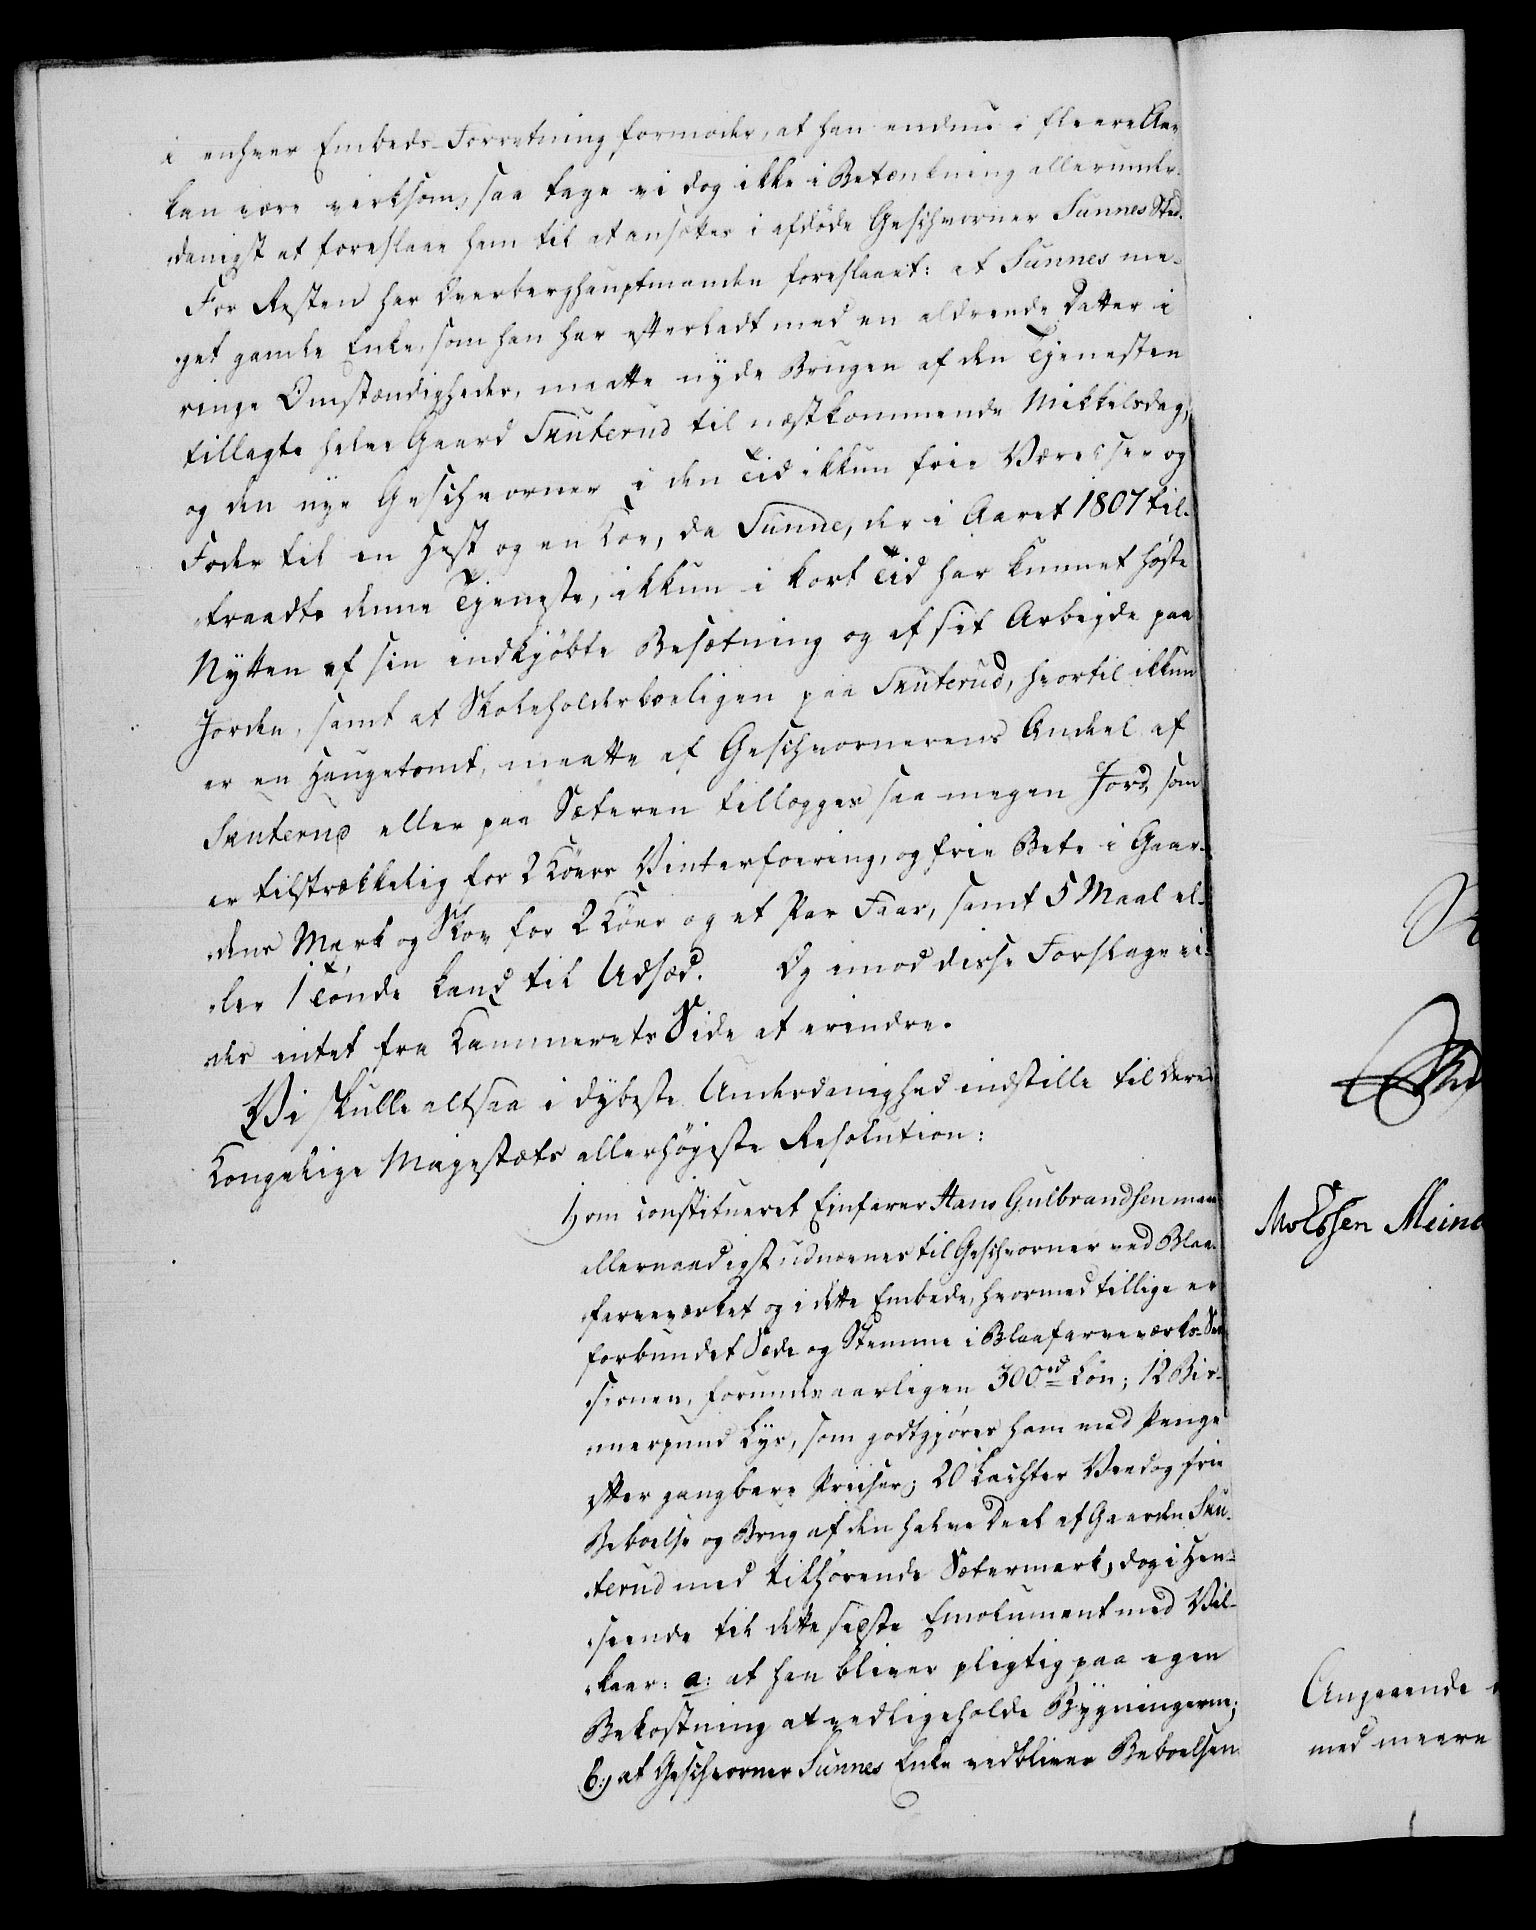 i enhver Embeds-Forretning formoder, at han endnu i fleere Aar
kan være virksom, saa tage vi dog ikke i Betænkning allerunder-
danigst at foreslaae ham til at ansættes i afdøde Geschworner Sunnes Sted.
For Resten har Overberghauptmanden foreslaaet: at Sunnes me-
get gamle Enke, som han har efterladt med en aldrende Datter i
ringe Omstændigheder, maatte nyde Brugen af den Tjenesten
tillagte halve Gaard Skuterud til næstkommende Mikkelsdag,
og den nye Geschworner i den Tid ikkun frie Værelser og
Foder til en Hest og en Koe, da Sunne, der i Aaret 1807 til-
traadte denne Tjeneste, ikkun i kort Tid har kunnet høste
Nytten af sin indkjøbte Besætning og af sit Arbejde paa
Jorden, samt at Skoleholderboeligen paa Skuterud, hvortil ikkun
er en Haugetomt, maatte af Geschwornerens Andeel af
Skuterud eller paa Sæteren tillægges saa megen Jord, som
er tilstrækkelig for 2 Køers Vinterfoering, og frie Bete i Gaar-
dens Mark og Skov for 2 Køer og et Par Faar, samt 5 Maal el-
ler 1 Tønde Land til Udsæd. Og imod disse Forslage vi-
des intet fra Kammerets Side at erindre.
Vi skulle altsaa i dybeste Underdanighed indstille til Deres
Kongelige Majestæts allerhøjeste Resolution:
1) om constitueret Einfarer Hans Gulbrandsen maae
allernaadigst udnævnes til Geschworner ved Blaa-
farveværket og i dette Embede, hvormed tillige er
forbundet Sæde og Stemme i Blaafarveværks-
sionen, forunde aarligen 300 rd Løn; 12 Bis-
merpund Lys, som godtgjøres ham med Penge
efter gangbare Priiser; 20 Lachter Veed og frie
Beboelse og Brug af den halve Deel af Gaarden Sku-
terud med tilhørende Sætermark, dog i Hen-
seende til dette sidste Emolument med Vil-
kaar: a: at han bliver pligtig paa egen
Bekostning at vedligeholde Bygningerne;
b:, at Geschworner Sunnes Enke vedbliver Beboelsen
Meine
Angaaende
med meere